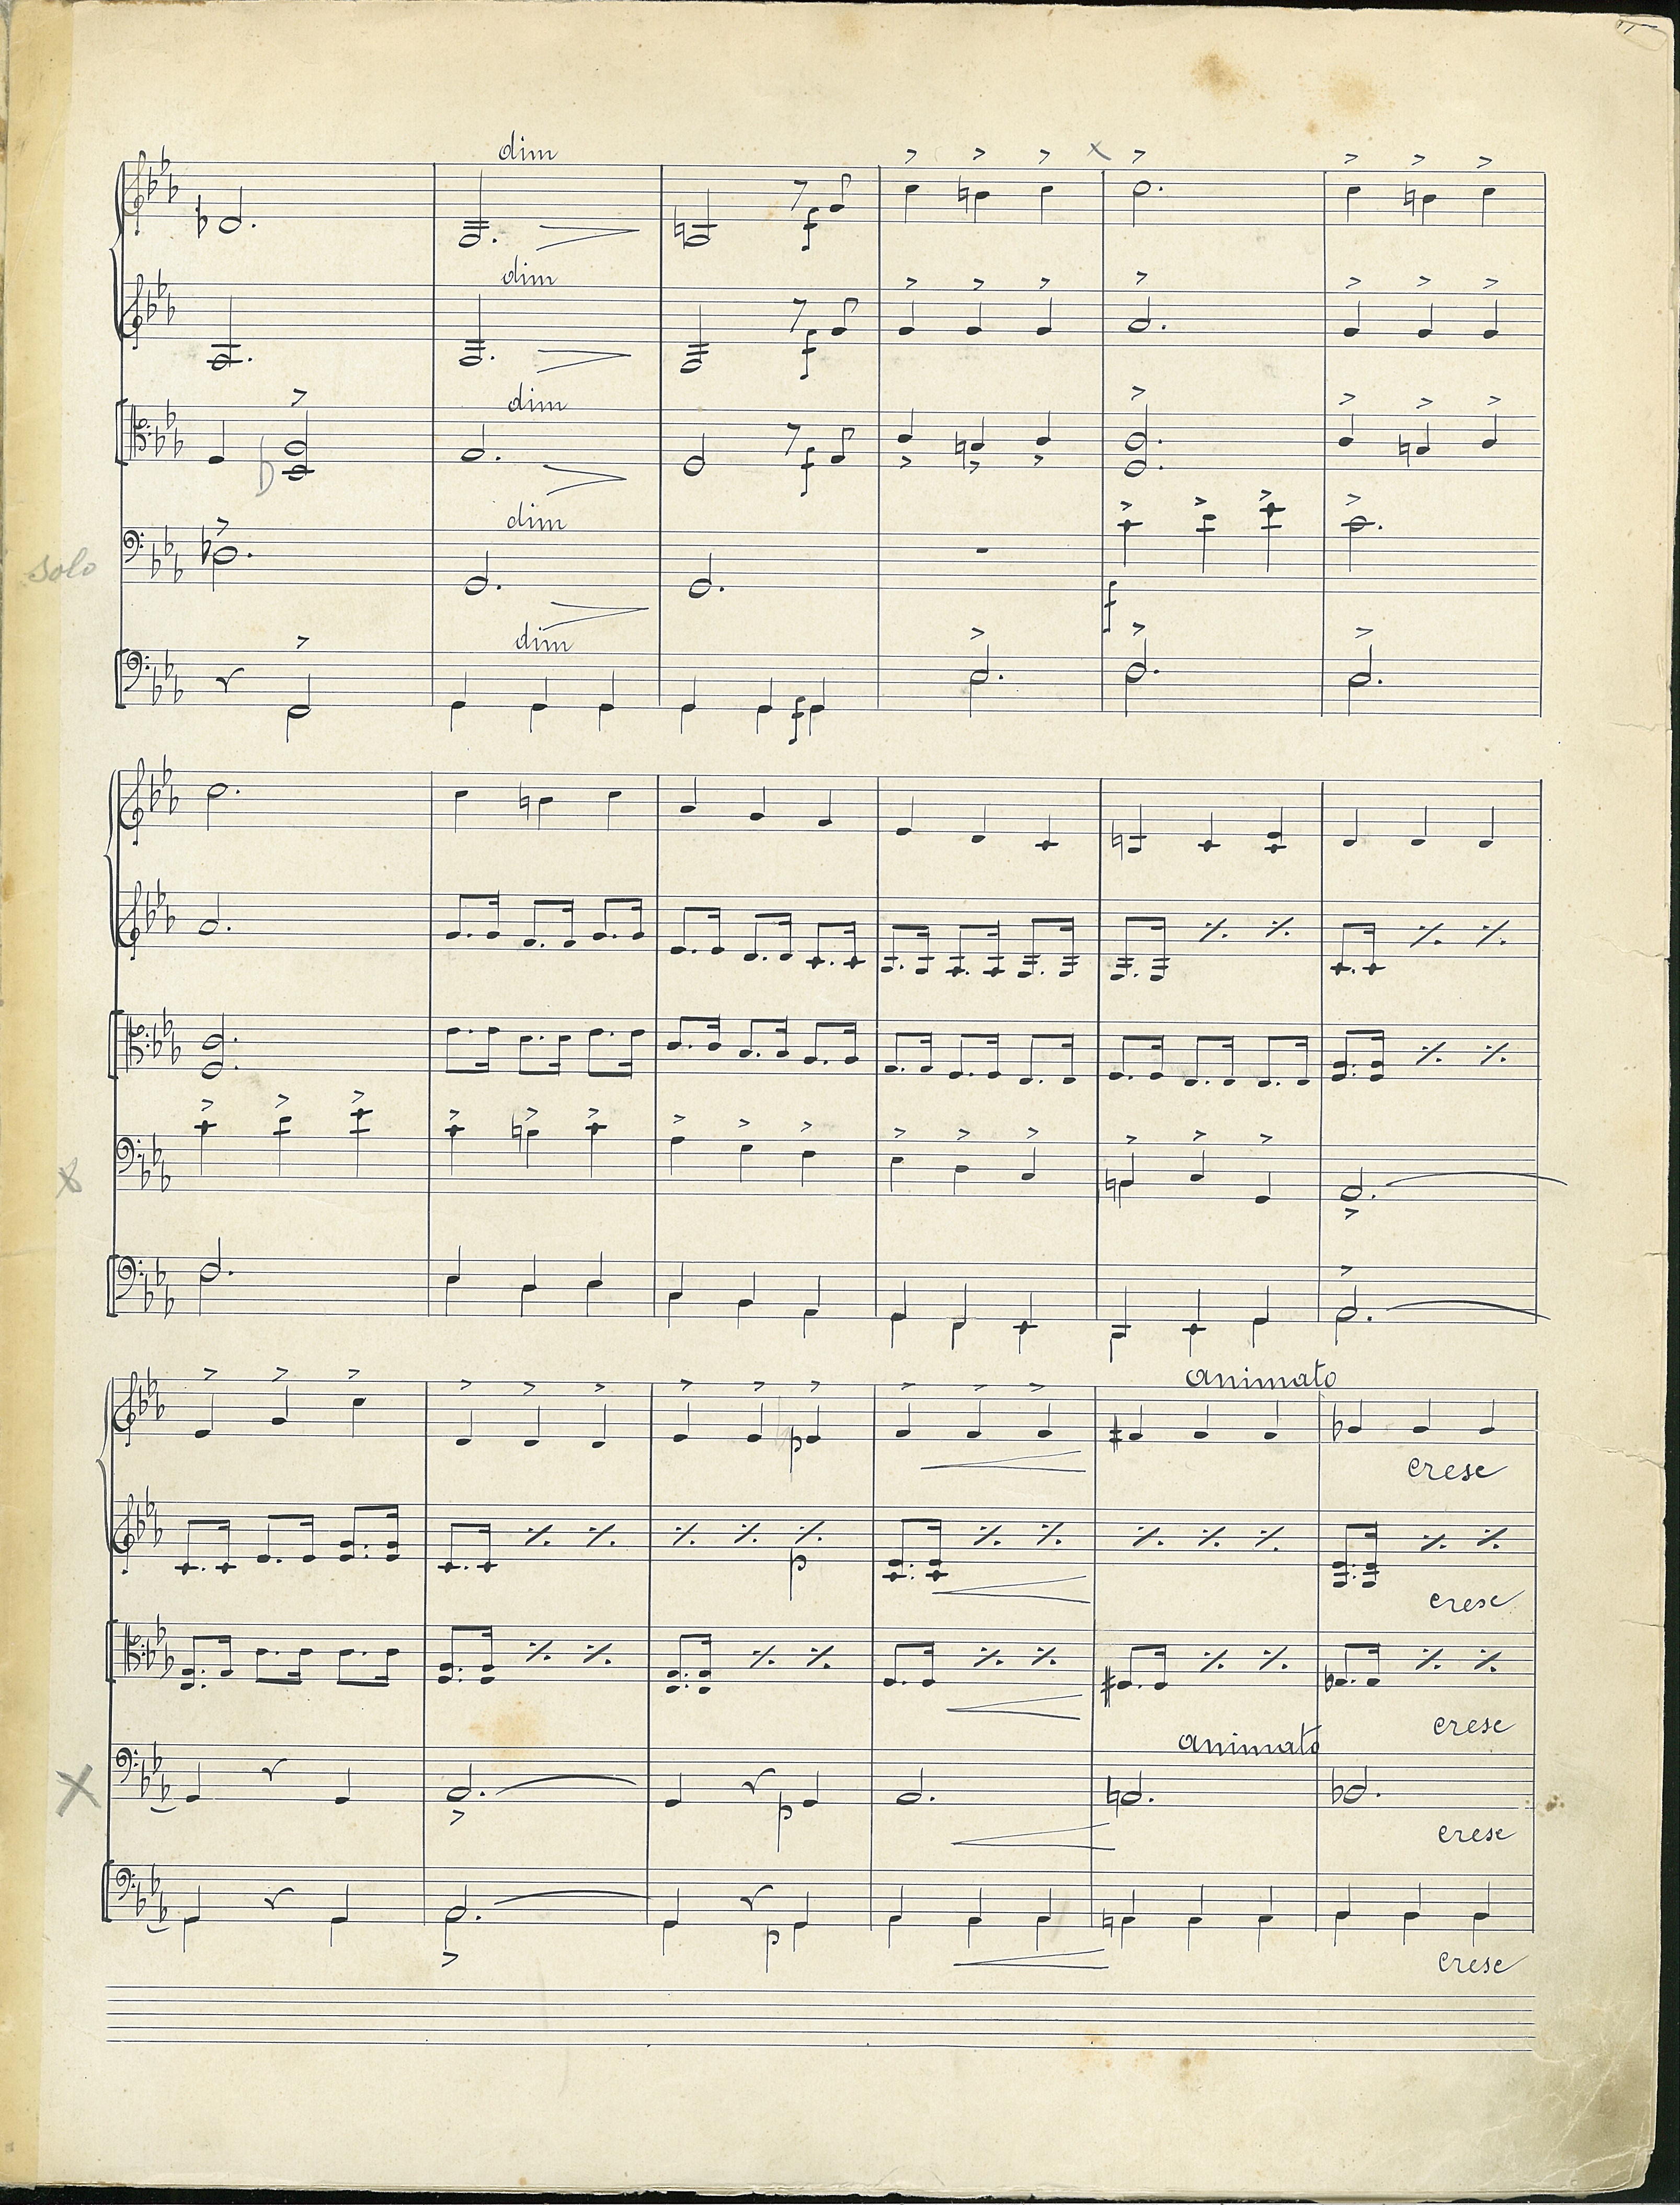 dim
dim
f
dim
f
dim
f
solo
dim
f
f
animato
p
cresc
p
cresc
cresc
animato
p
cresc
p
cresc